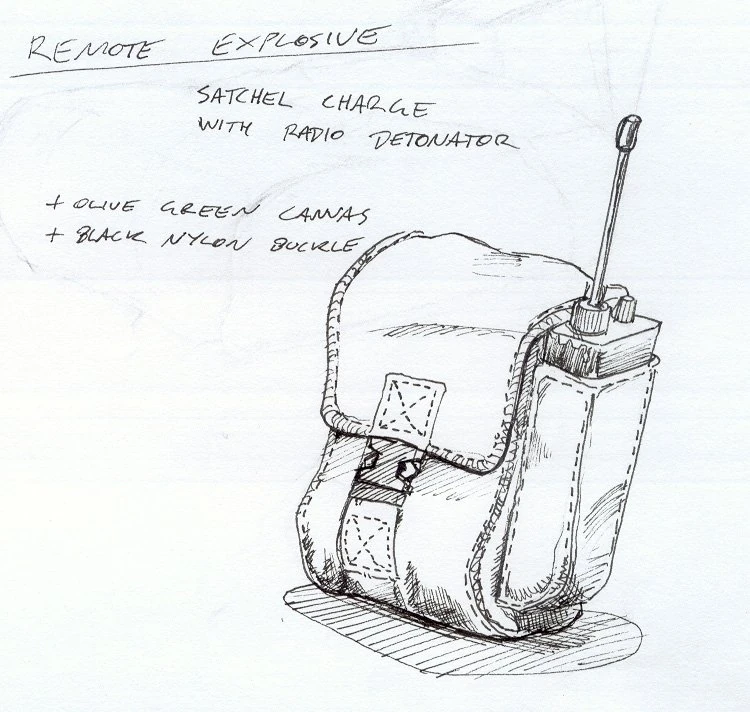 REMOTE EXPLOSIVE
SATCHEL CHARGE
WITH RADIO DETONATOR
+ OLIVE GREEN CANVAS
+ BLACK NYLON BUCKLE